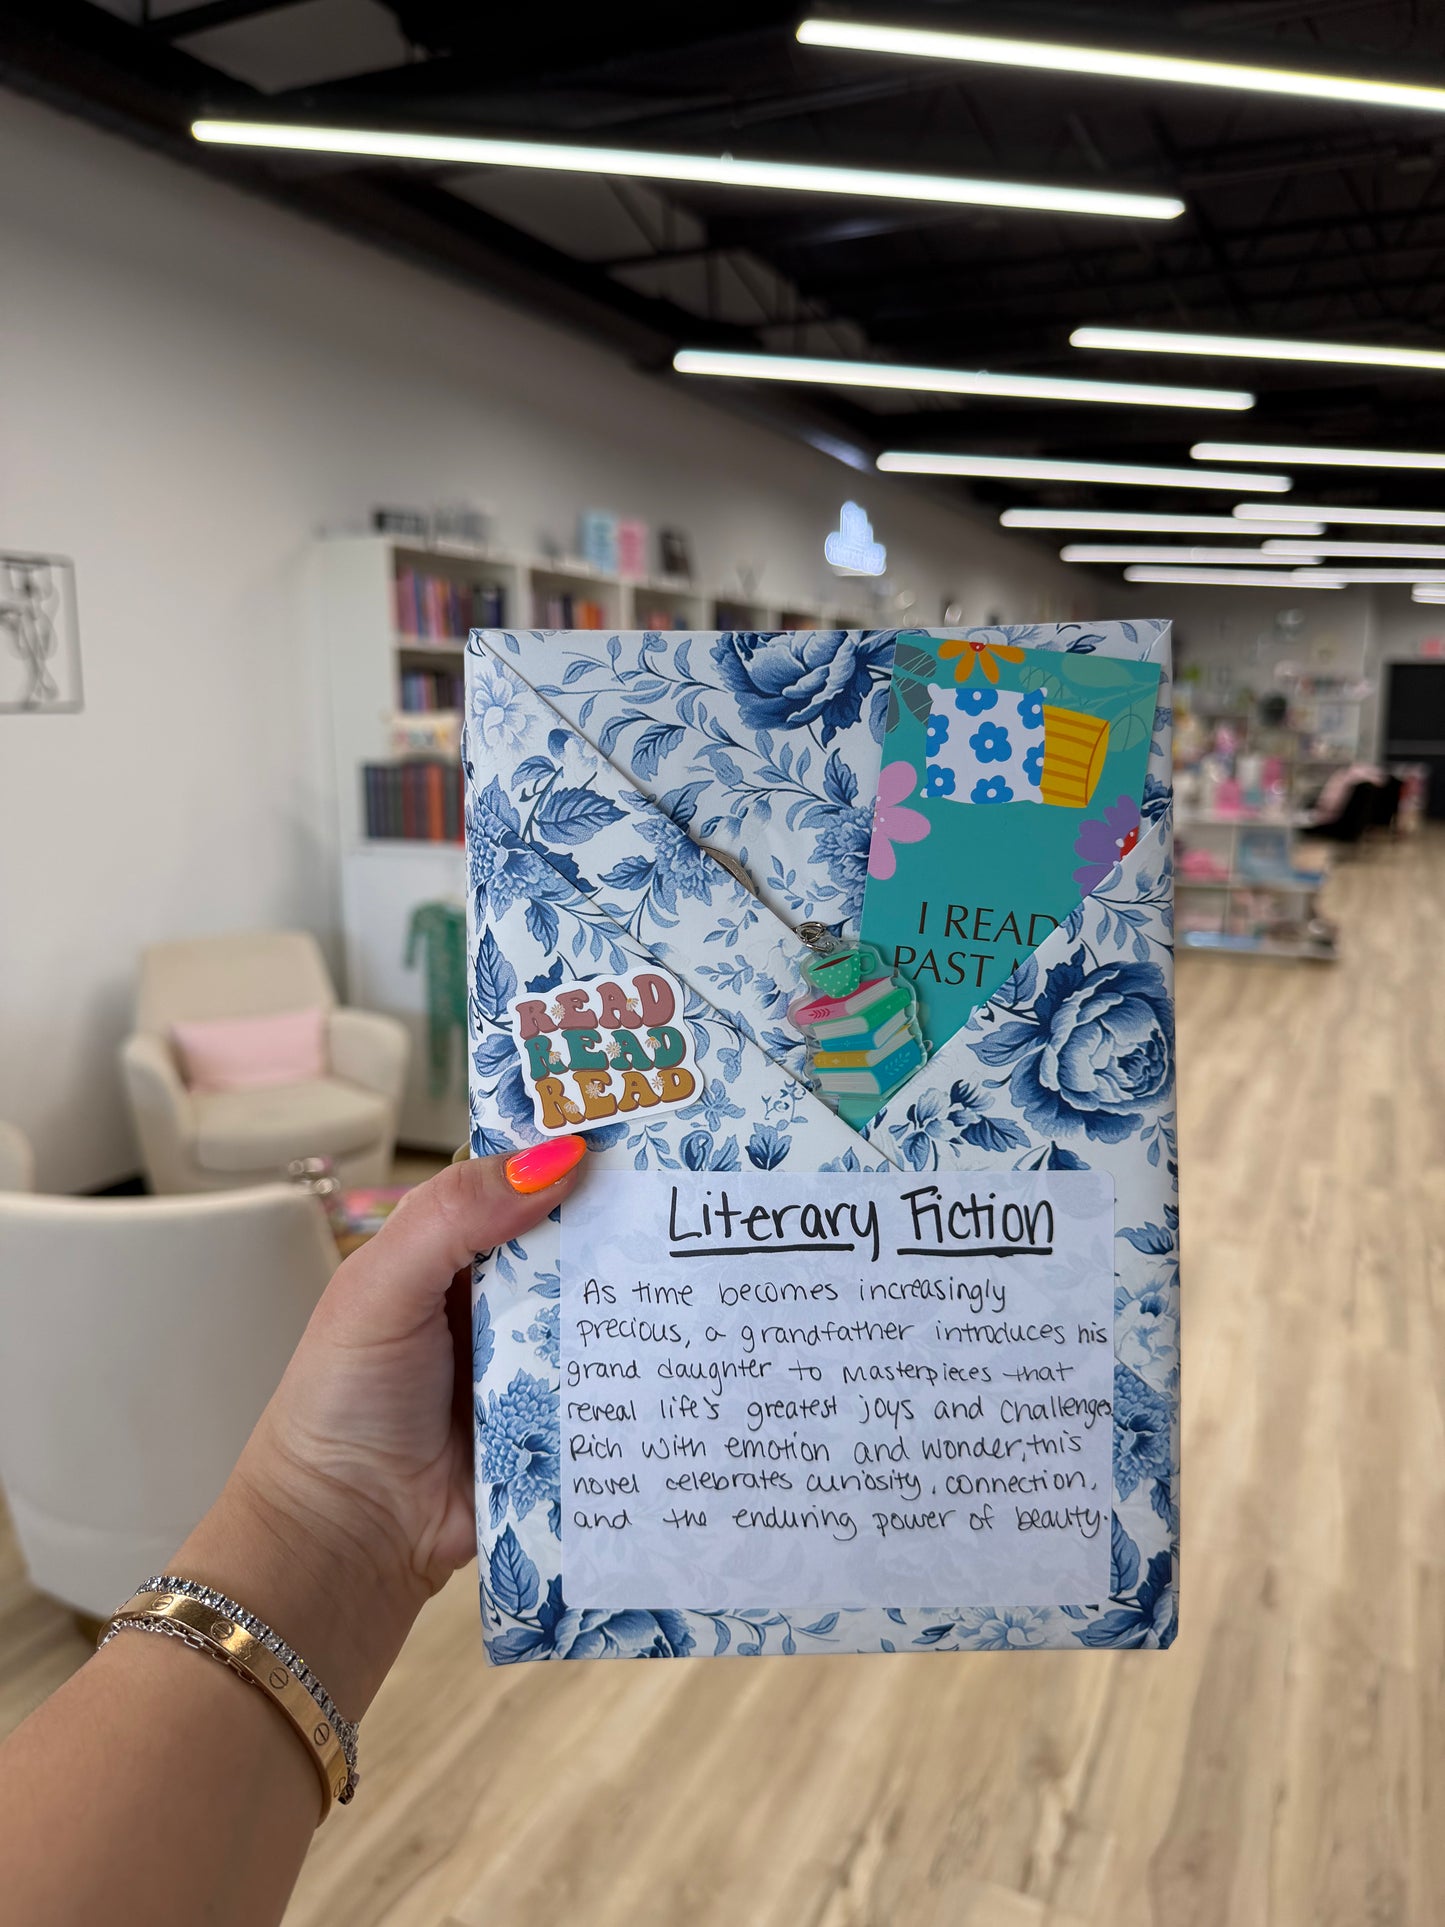 I READ
PAST
READ
READ
READ
Literary Fiction
As time becomes increasingly
precious, a grandfather introduces his
grand daughter to masterpieces that
reveal life's greatest joys and challenges
Rich with emotion and wonder, this
novel celebrates curiosity, connection,
and the enduring power of beauty.